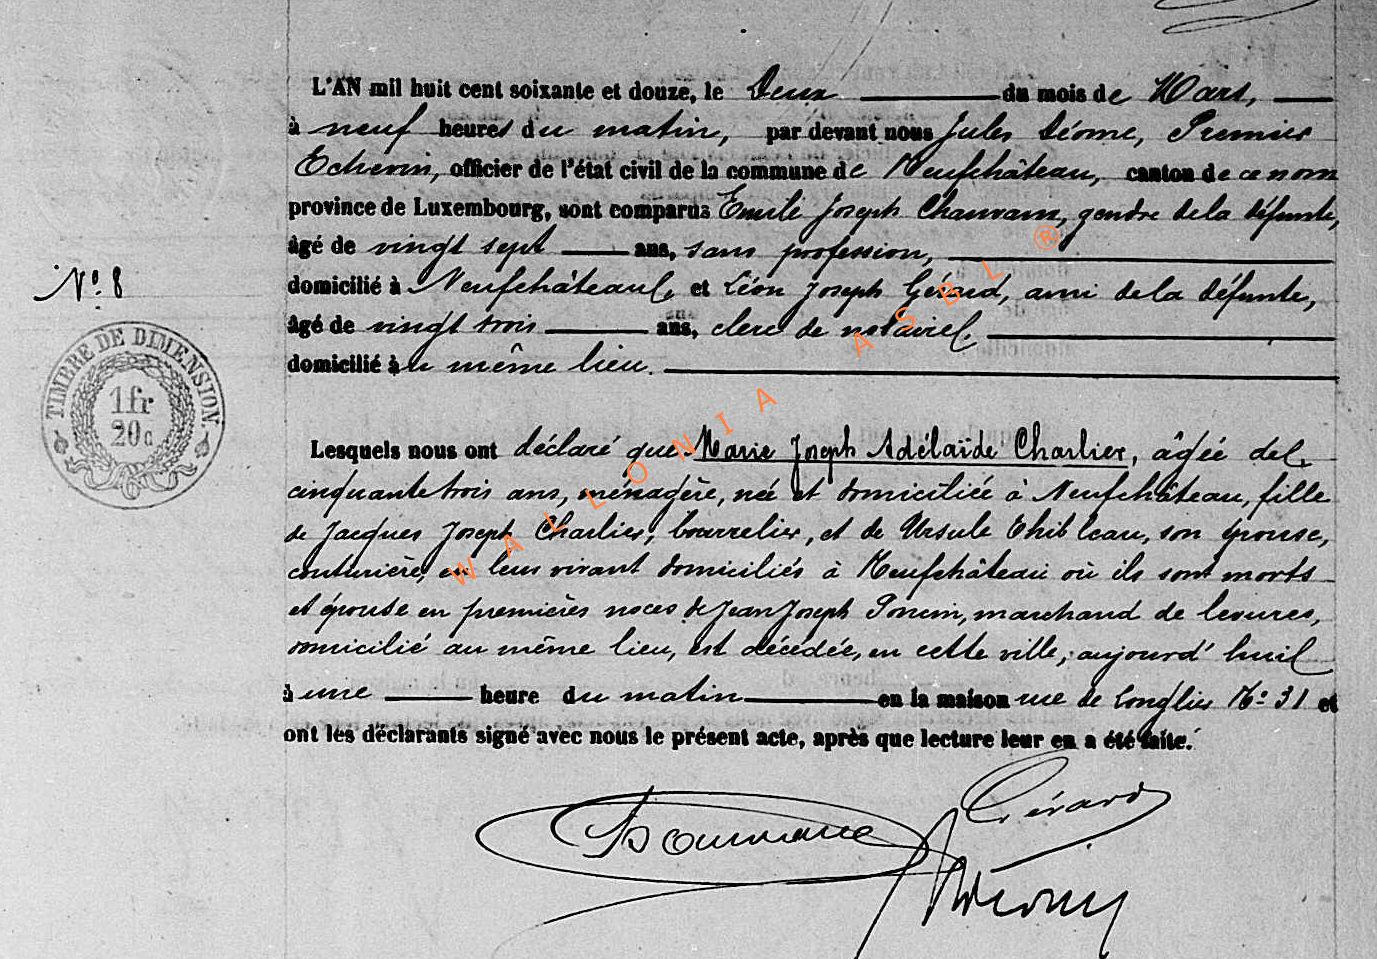 L'AN mil huit cent soixante et douze, le Deux du mois de Mars,
à neuf heures du matin, par devant nous Jules Déome, Premier
Echevin, officier de l'état civil de la commune de Neufchâteau, canton de ce nom
province de Luxembourg, sont comparus Emile Joseph gendre de la défunte,
âgé de vingt sept ans, sans profession,
domicilié à Neufchâteau, et Léon Joseph Gérard, ami de la défunte,
N° 8
âgé de vingt trois ans, clerc de notaire,
domicilié au même lieu.
TIMBRE DE DIMENSION.
1 fr
20 c
Lesquels nous ont déclaré que Marie Joseph Adélaïde Charlier, âgée de
cinquante trois ans, ménagère, née et domiciliée à Neufchâteau, fille
de Jacques Joseph Charlier, bourrelier, et de Ursule Thibleau, son épouse,
couturière, en leur vivant domiciliés à Neufchâteau où ils sont morts
et épouse en premières noces de Jean Joseph Poncin, marchand de levures,
domicilié au même lieu, est décédée, en cette ville, aujourd'hui
à une heure du matin en la maison rue de Longlier N° 31 et
ont les déclarants signé avec nous le présent acte, après que lecture leur en a été faite.
Gérard
WALLONIA ASBL ®